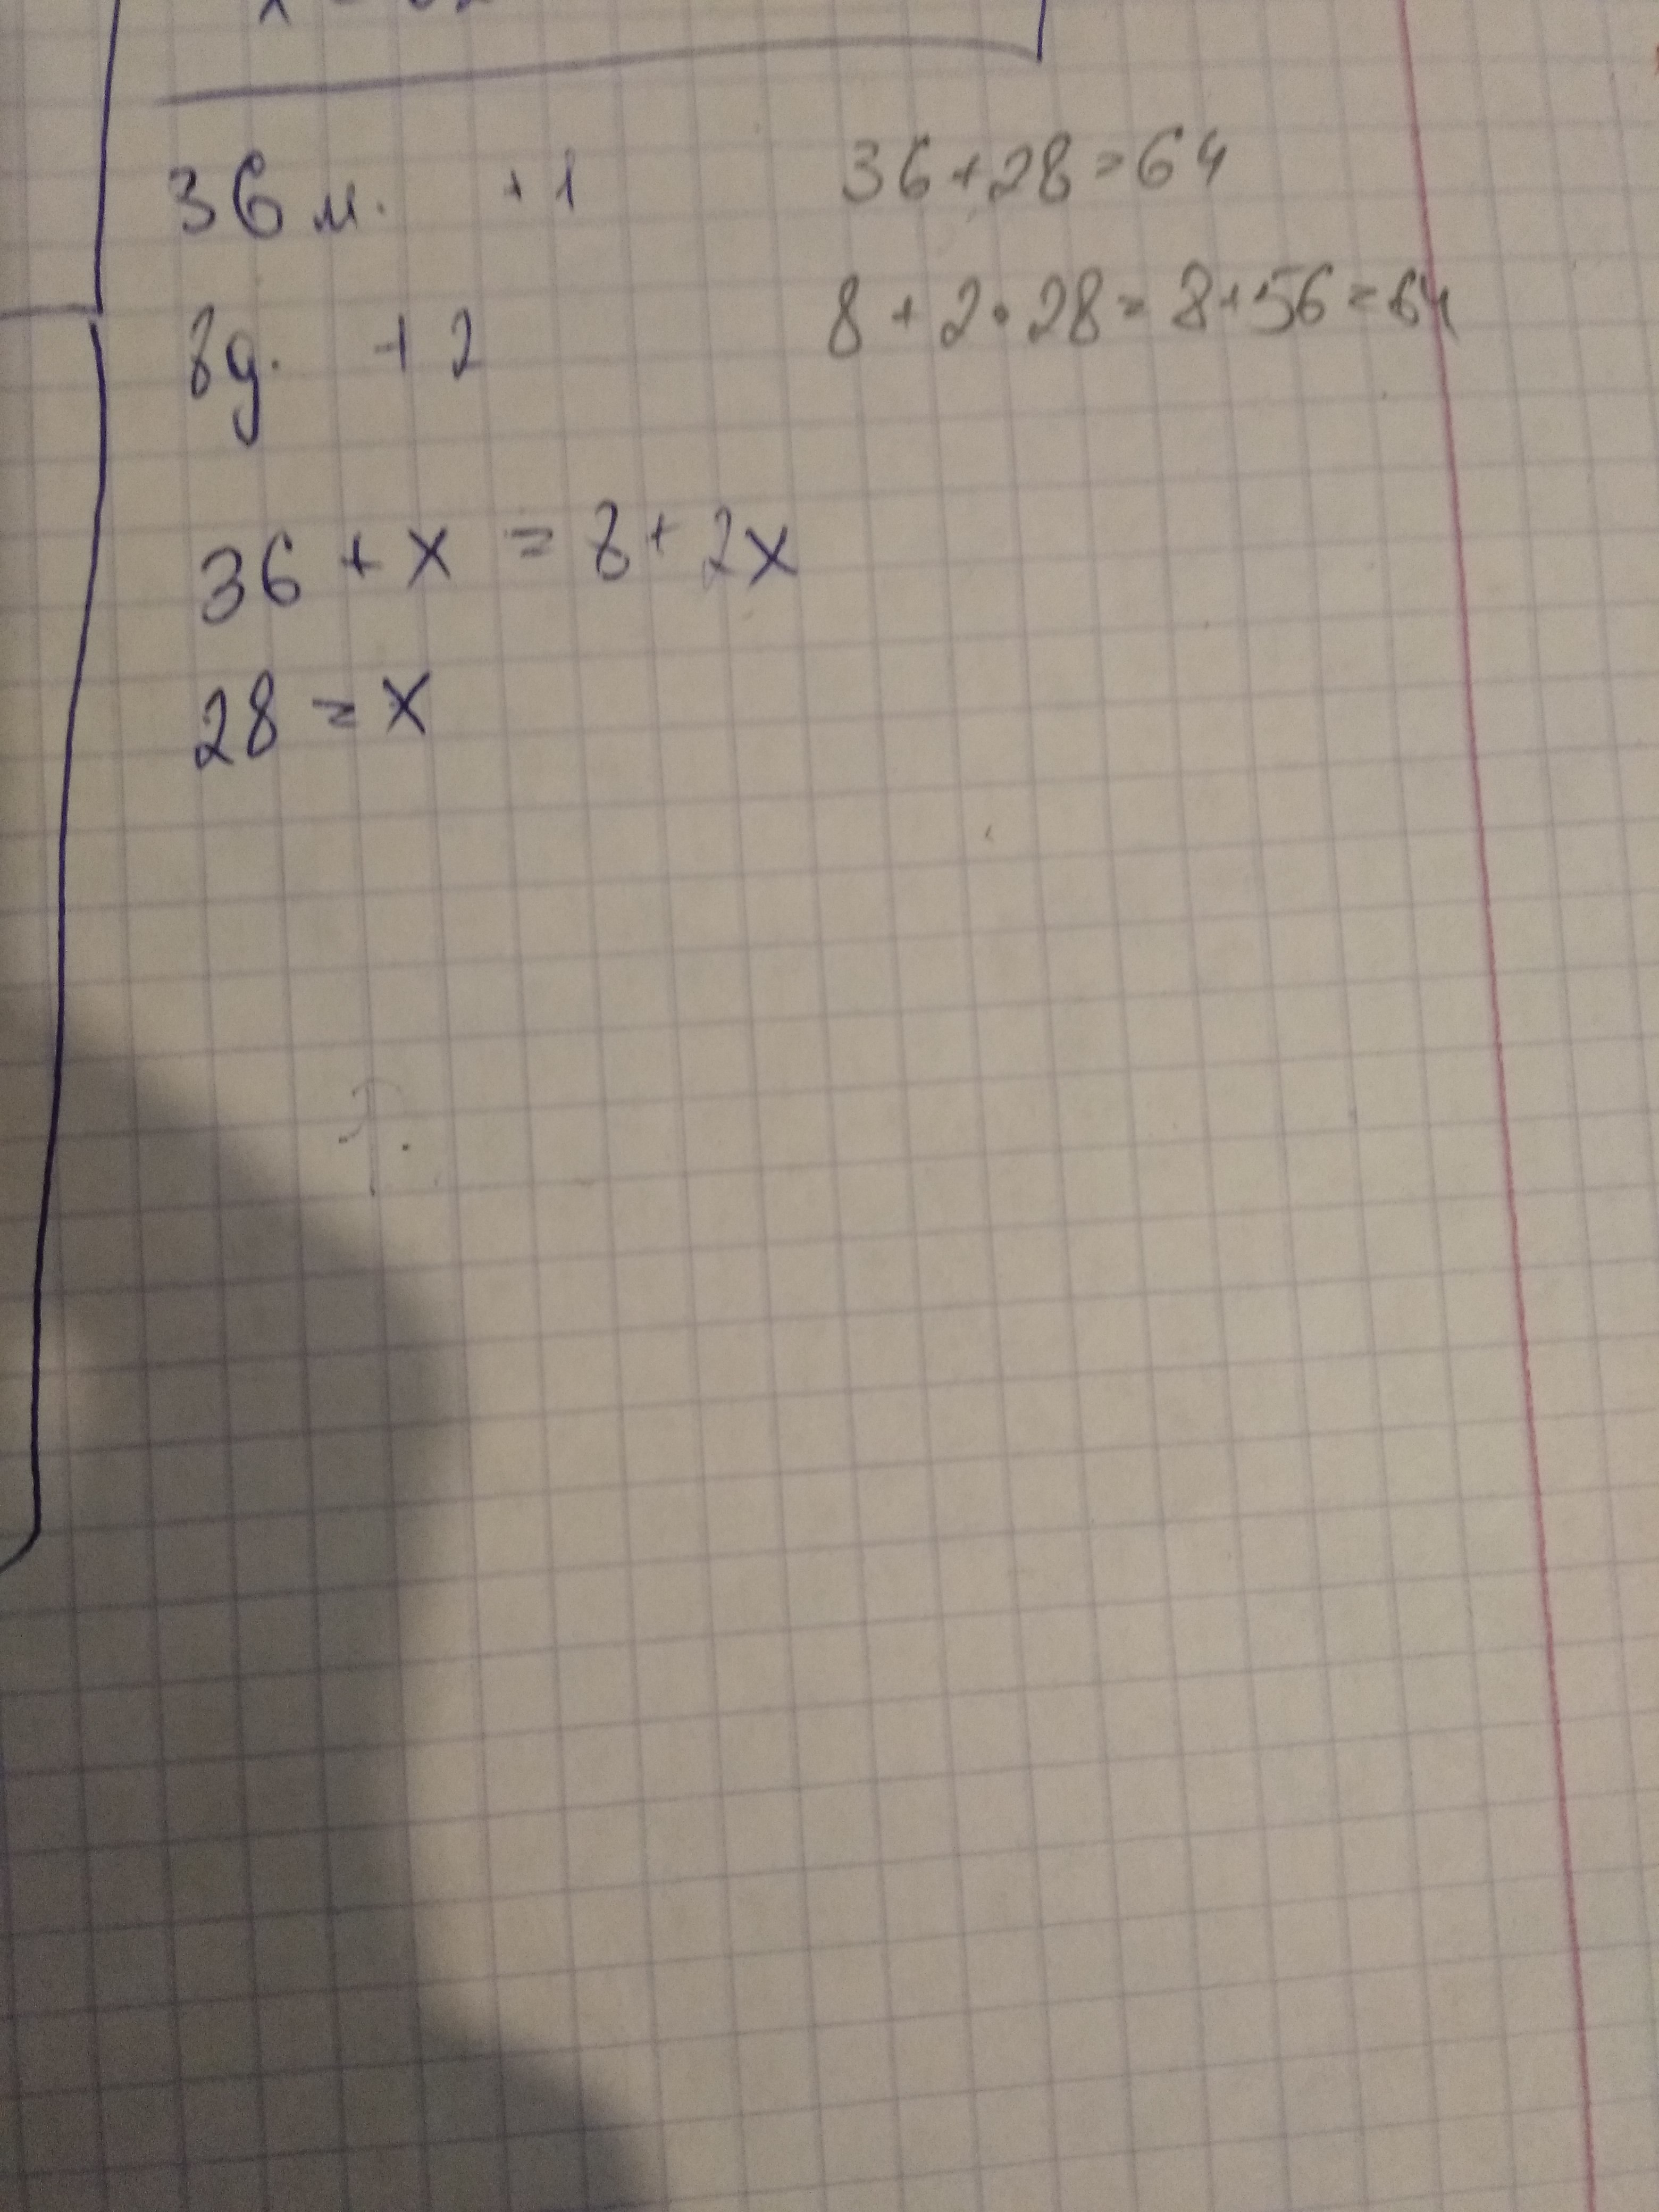 36 м. +1
8д. +2
36 + x = 8 + 2x
28 = x
36+28=64
8 + 2 · 28 = 8+56=64